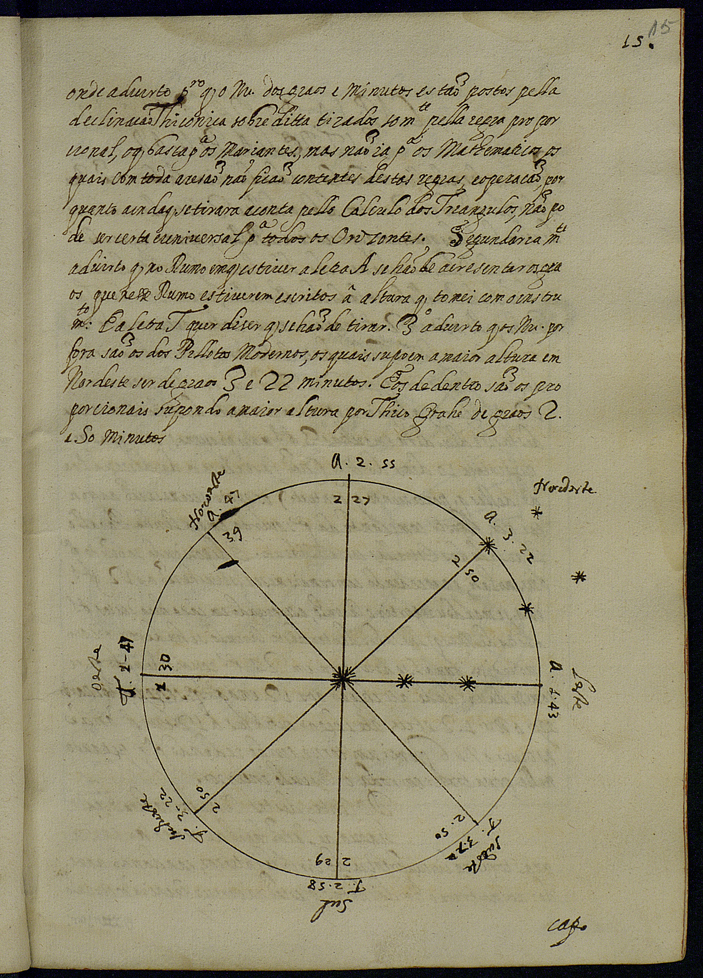 15.
15
onde aduirto pro q o Nu. dos graos e Minutos estaõ postos pella
declinaçaõ Thiconica sobreditta tirados som te pella regra propor
cional, o q basta p a os Mariantes, mas naõ ja p a os Mathematicos, os
quais com toda a resaõ naõ ficaõ contentes destas regras, e operaçaõ, por
quanto ainda q se tirara a conta pello Calculo dos Treangulos, naõ po
de ser certa e universal p a todos os Orizontes. Segundaria m te
aduirto q no Rumo em q estiuer a letra A se haõ de acresentar os gra
os que nesse Rumo estiuerem escritos â altura q tomei com o instru
m to: E a letra T quer diser q se haõ de tirar. 3 o aduerto q os Nu. por
fora saõ os dos Pillotos Modernos, os quais supoem a maior altura em
Nordeste ser de graos 3 e 22 minutos. E os de dentro saõ os pro
porcionais supondo a maior altura por Thico Brahe de graos 2.
e 50 Minutos
A. 2. 55
2 27
Nordeste
A. 3. 22
2 50
A. 47
39
Oeste
T. 2-47
2 30
Leste
A. 2. 43
2 50
T. 3-22
Sudueste
2. 50
T. 3-22
Sueste
2 29
T. 2. 58
Sul
Capo